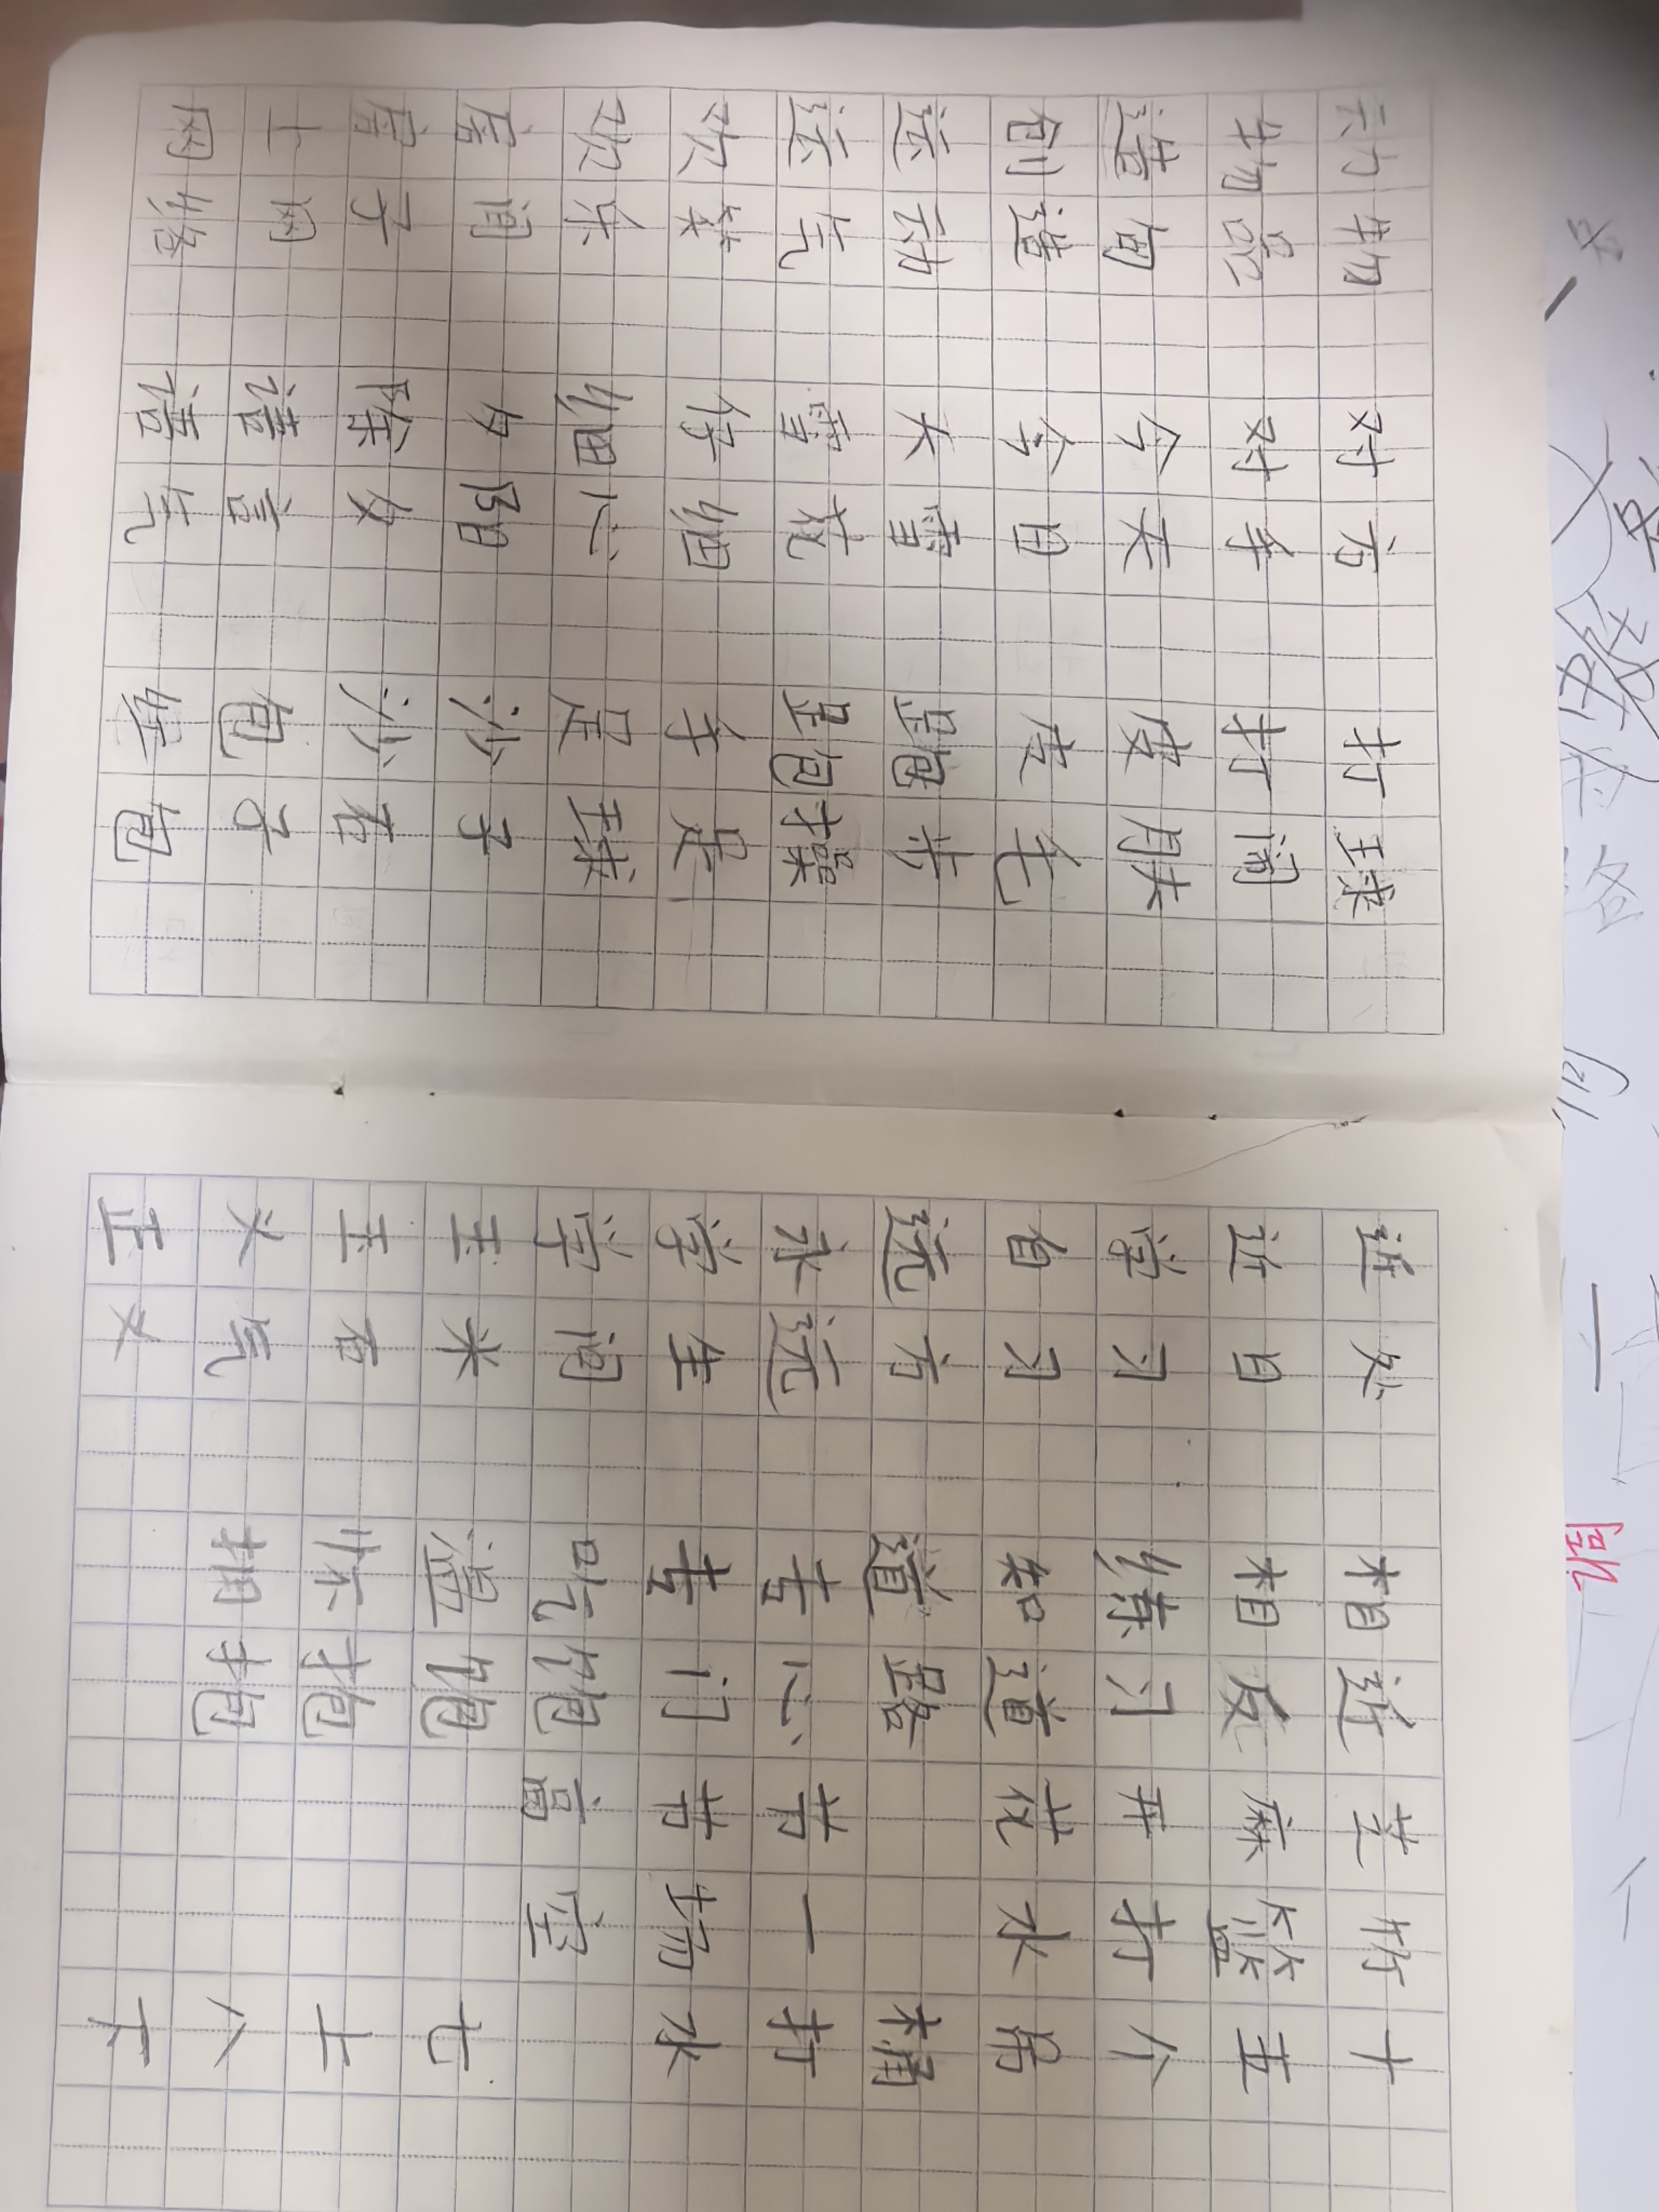 动物 对方 打球
物品 对手 打闹
造句 今天 皮肤
创造 今日 皮毛
运动 大雪 跑步
运气 雪花 跑操
欢笑 仔细 手足
欢乐 细心 足球
房间 夕阳 沙子
房子 除夕 沙石
上网 语言 包子
网络 语气 包
近处 相近 芝 十
近日 相反 麻 篮 五
学习 练习 开 打 个
自习 知道 花 水 吊
远方 道路 桶
永远 专心 节 一 打
学生 专门 节 水
学问 吃饱 高 空
玉米 七
玉石 怀抱 上
火气 拥抱 八
正义 下